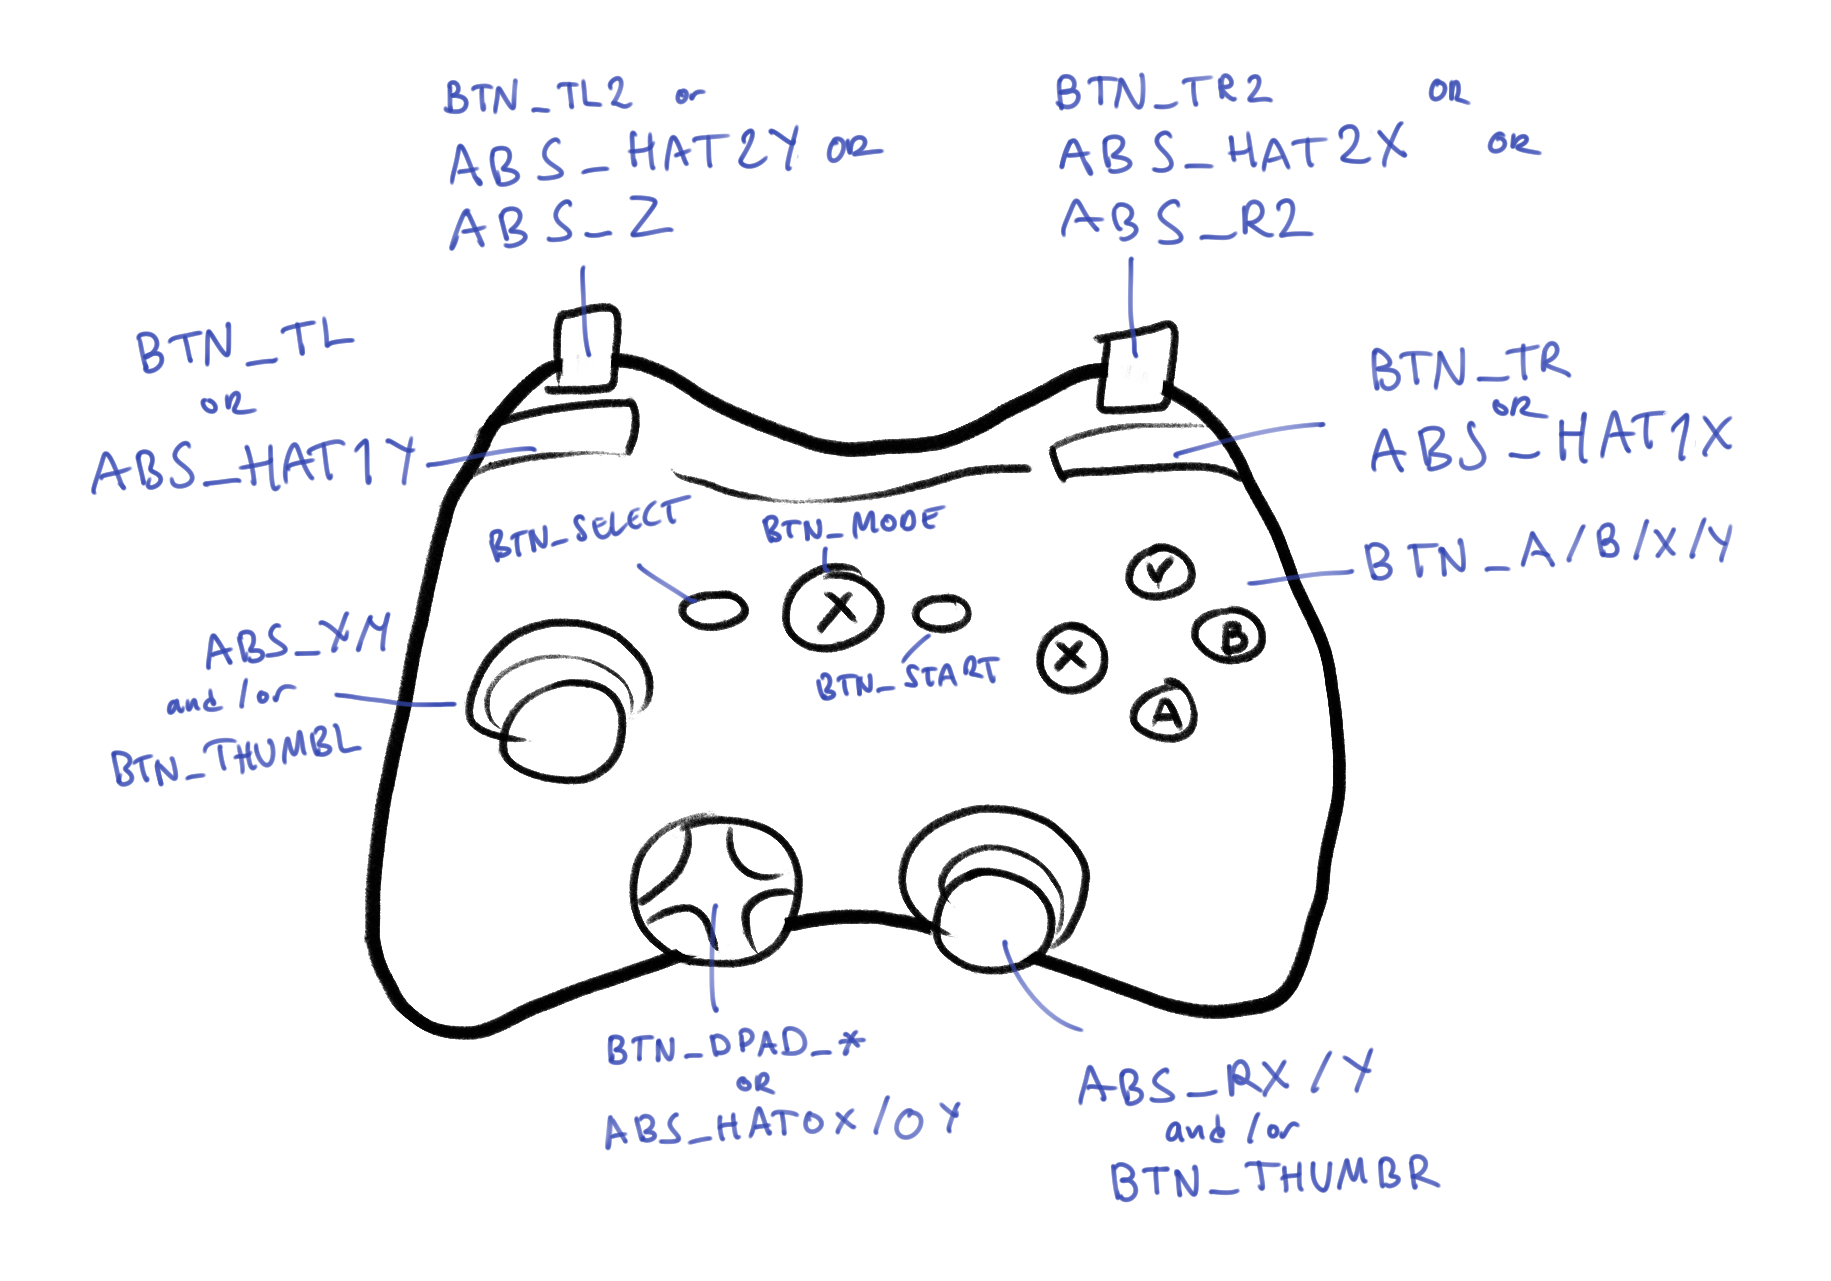 BTN_TL2 or
ABS_HAT2Y OR
ABS_Z
BTN_TR2 OR
ABS_HAT2X OR
ABS_R2
BTN_TL
OR
ABS_HAT1Y
BTN_TR
OR
ABS_HAT1X
BTN_SELECT
BTN_MODE
X
BTN_START
BTN_A/B/X/Y
Y
B
X
A
ABS_X/Y
and/or
BTN_THUMBL
BTN_DPAD_*
OR
ABS_HAT0X/0Y
ABS_RX/Y
and/or
BTN_THUMBR